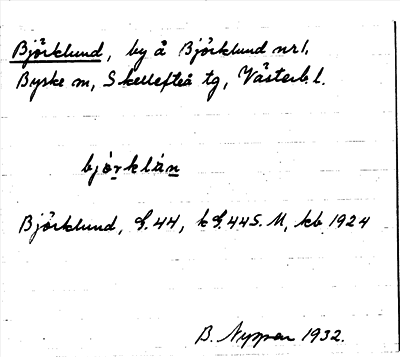 Björklund, by å Björklund nr 1.
Byske sn, Skellefteå tg, Västerb. l.
bjö̀rklàn
Björklund, S. 44, k S. 44 S. M, kb 1924
B. Nyppen 1932.